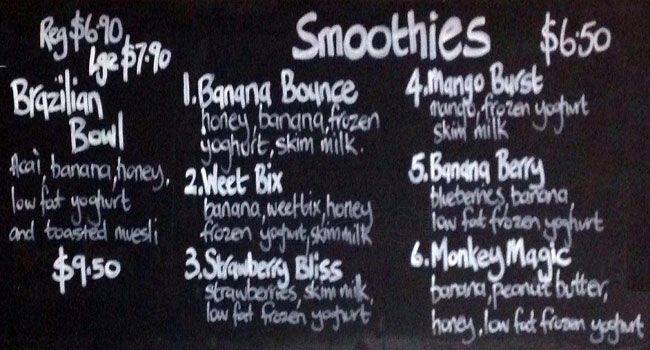 Reg $6.90
Lge $7.90
Brazilian
Bowl
Acai, banana, honey,
low fat yoghurt
and toasted muesli
$9.50
Smoothies $6.50
1. Banana Bounce
honey, banana, frozen
yoghurt, skim milk.
2. Weet Bix
banana, weetbix, honey
frozen yogurt, skim milk
3. Strawberry Bliss
strawberries, skim milk,
low fat frozen yogurt
4. Mango Burst
mango, frozen yoghurt
skim milk
5. Banana Berry
blueberries, banana,
low fat frozen yoghurt
6. Monkey Magic
banana, peanut butter,
honey, low fat frozen yoghurt